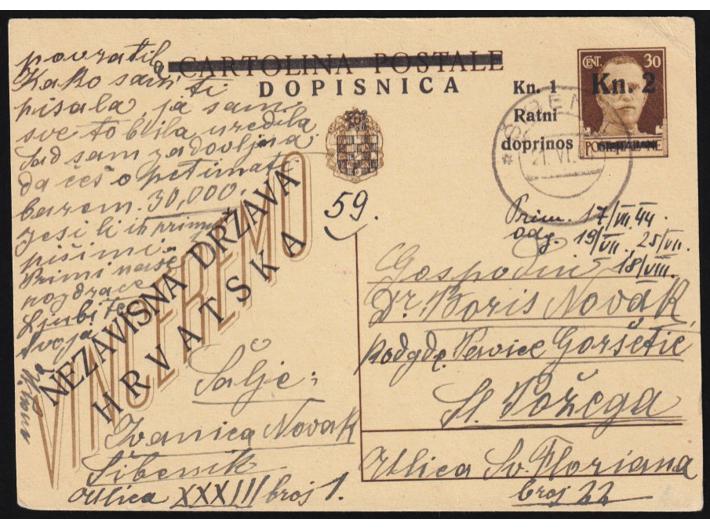 CARTOLINA POSTALE
DOPISNICA
CENT. 30
Kn. 2
Kn. 1
Ratni
doprinos
21. VI.
59.
NEZAVISNA DRŽAVA
HRVATSKA
VINCEREMO
povratil
Kako sam ti
pisala, ja sam
sve to bila uredila
Sad sam zadovoljna
da ćeš opetimati
barem 30,000.
jesi li ih primio
piši mi.
Primi naše
pozdrave
Ljubi te
tvoja
majka
Prim. 17/VII.44.
odg. 19/VII. 25/VII.
18/VIII.
Gospodin
Dr. Boris Novak
podgđe Pervice Goršetić
Sl. Požega
Ulica Sv. Floriana
broj 22
Šalje:
Ivanica Novak
Šibenik
Ulica XXXIII broj 1.